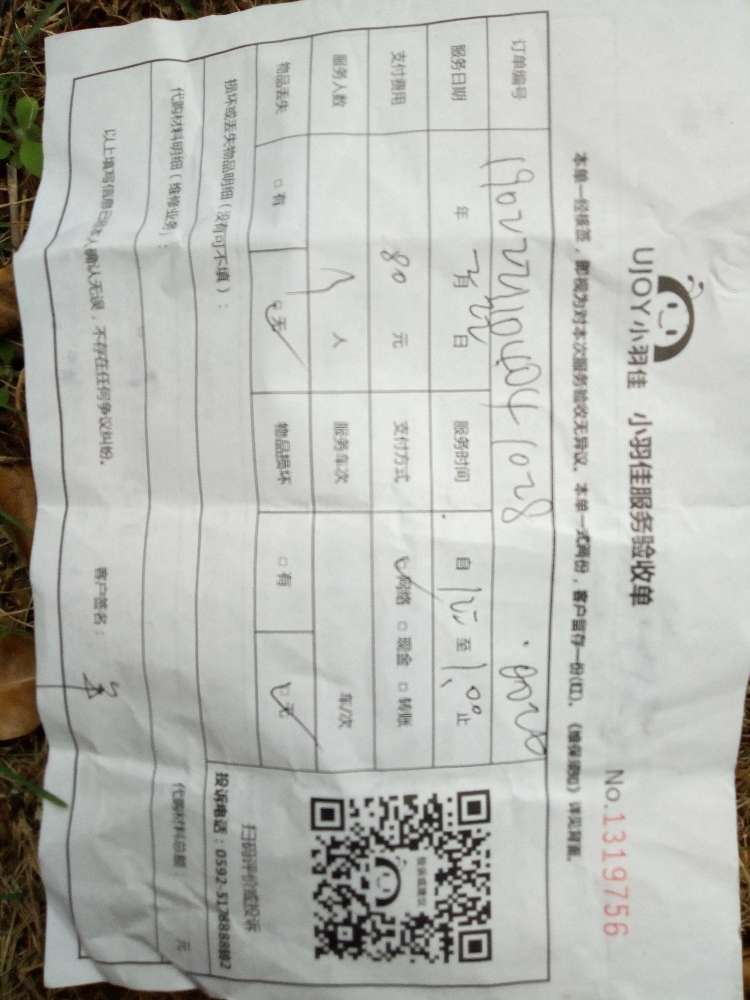 UJOY小羽佳 小羽佳服务验收单
No.1319756
本单一经核签，即视为对本次服务验收无异议。本单一式两份，客户留存一份(红)。《维保须知》详见背面。
订单编号
服务日期 年 月 日 服务时间 自 至 1:00 止
支付费用 80 元 支付方式 网络 □ 现金 □ 转账
服务人数 人 服务车次 车/次
物品丢失 □ 有 □ 无 物品损坏 □ 有 □ 无
损坏或丢失物品明细（没有可不填）：
代购材料明细（维修业务）： 代购材料总额： 元
以上填写信息已 人确认无误，不存在任何争议纠纷。 客户签名：
投诉或建议
扫码评价或投诉
投诉电话：0592-5128888转2